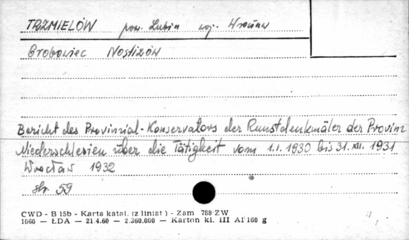 TRZMIELÓW pow. Lubin woj. Wrocław
Grobowiec Nostizów
Bericht des Provinzial-Konservators der Kunstdenkmäler der Provinz
Niederschlesien über die Tätigkeit vom 1.I.1930 bis 31.XII.1931
Wrocław 1932
Str. 59
CWD - B 15b - Karta katal. (z liniat) - Zam 788 ZW
1660 — ŁDA — 21.4.60 — 2.360.000 — Karton kl. III A1 160 g